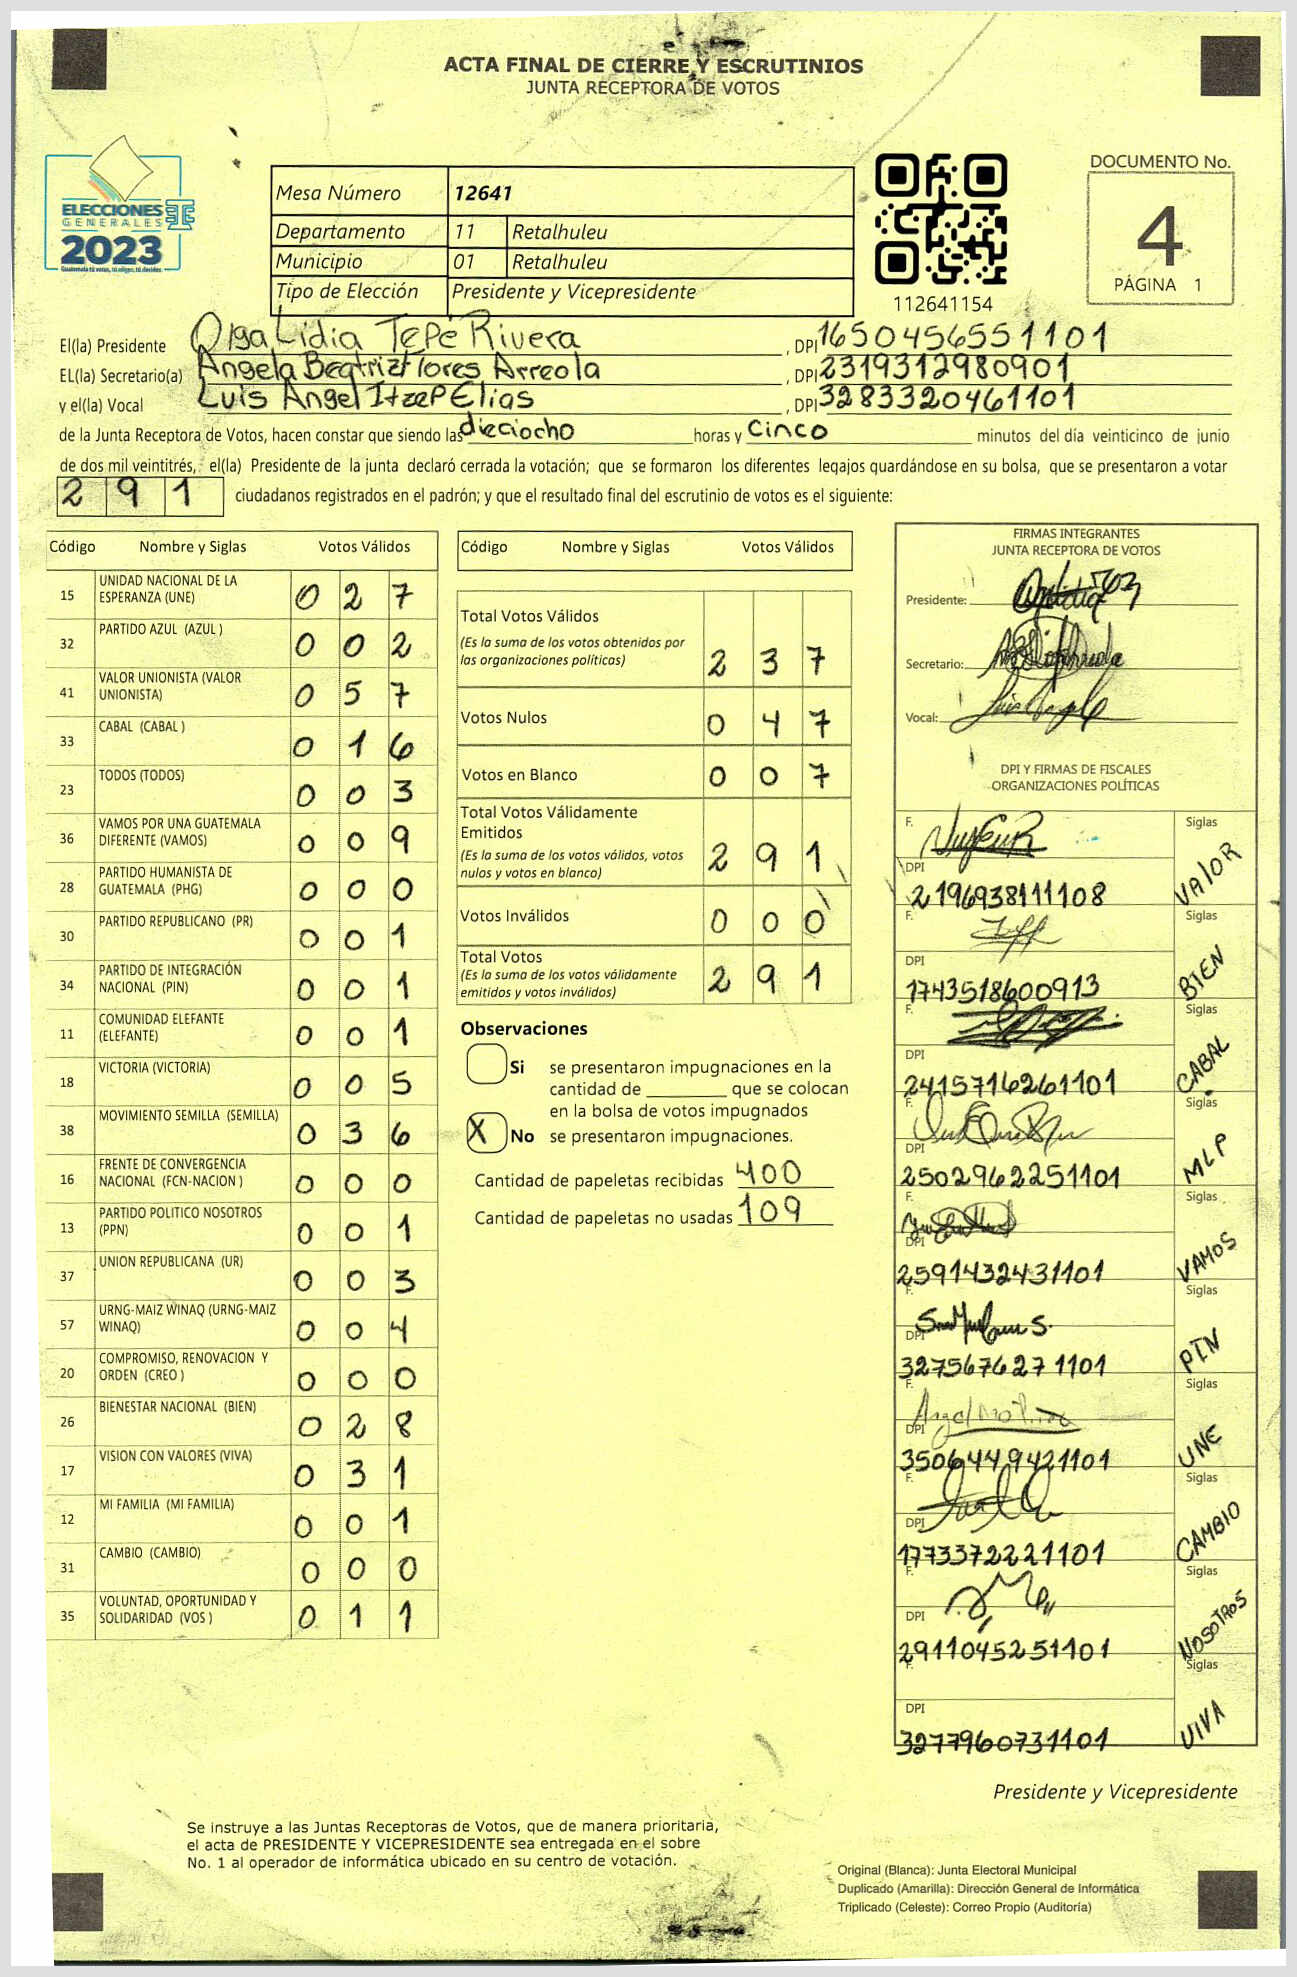 ACTA FINAL DE CIERRE Y ESCRUTINIOS
JUNTA RECEPTORA DE VOTOS
ELECCIONES
GENERALES
2023
Guatemala tú votas, tú eliges, tú decides
Mesa Número 12641
Departamento 11 Retalhuleu
Municipio 01 Retalhuleu
Tipo de Elección Presidente y Vicepresidente
112641154
DOCUMENTO No.
4
PÁGINA 1
El(la) Presidente Olga Lidia Tepé Rivera, DPI 1650456551101
EL(la) Secretario(a) Angela Beatriz Flores Arreola, DPI 2319312980901
y el(la) Vocal Luis Angel Itzep Elias, DPI 3283320461101
de la Junta Receptora de Votos, hacen constar que siendo las dieciocho horas y cinco minutos del día veinticinco de junio
de dos mil veintitrés, el(la) Presidente de la junta declaró cerrada la votación; que se formaron los diferentes legajos guardándose en su bolsa, que se presentaron a votar
291 ciudadanos registrados en el padrón; y que el resultado final del escrutinio de votos es el siguiente:
Código Nombre y Siglas Votos Válidos
15 UNIDAD NACIONAL DE LA ESPERANZA (UNE) 0 2 7
32 PARTIDO AZUL (AZUL ) 0 0 2
41 VALOR UNIONISTA (VALOR UNIONISTA) 0 5 7
33 CABAL (CABAL ) 0 1 6
23 TODOS (TODOS) 0 0 3
36 VAMOS POR UNA GUATEMALA DIFERENTE (VAMOS) 0 0 9
28 PARTIDO HUMANISTA DE GUATEMALA (PHG) 0 0 0
30 PARTIDO REPUBLICANO (PR) 0 0 1
34 PARTIDO DE INTEGRACIÓN NACIONAL (PIN) 0 0 1
11 COMUNIDAD ELEFANTE (ELEFANTE) 0 0 1
18 VICTORIA (VICTORIA) 0 0 5
38 MOVIMIENTO SEMILLA (SEMILLA) 0 3 6
16 FRENTE DE CONVERGENCIA NACIONAL (FCN-NACION ) 0 0 0
13 PARTIDO POLITICO NOSOTROS (PPN) 0 0 1
37 UNION REPUBLICANA (UR) 0 0 3
57 URNG-MAIZ WINAQ (URNG-MAIZ WINAQ) 0 0 4
20 COMPROMISO, RENOVACION Y ORDEN (CREO ) 0 0 0
26 BIENESTAR NACIONAL (BIEN) 0 2 8
17 VISION CON VALORES (VIVA) 0 3 1
12 MI FAMILIA (MI FAMILIA) 0 0 1
31 CAMBIO (CAMBIO) 0 0 0
35 VOLUNTAD, OPORTUNIDAD Y SOLIDARIDAD (VOS ) 0 1 1
Código Nombre y Siglas Votos Válidos
Total Votos Válidos
(Es la suma de los votos obtenidos por
las organizaciones políticas) 2 3 7
Votos Nulos 0 4 7
Votos en Blanco 0 0 7
Total Votos Válidamente
Emitidos
(Es la suma de los votos válidos, votos
nulos y votos en blanco) 2 9 1
Votos Inválidos 0 0 0
Total Votos
(Es la suma de los votos válidamente
emitidos y votos inválidos) 2 9 1
Observaciones
Si se presentaron impugnaciones en la
cantidad de ________ que se colocan
en la bolsa de votos impugnados
X No se presentaron impugnaciones.
Cantidad de papeletas recibidas 400
Cantidad de papeletas no usadas 109
FIRMAS INTEGRANTES
JUNTA RECEPTORA DE VOTOS
Presidente:
Secretario:
Vocal:
DPI Y FIRMAS DE FISCALES
ORGANIZACIONES POLÍTICAS
F. Siglas
DPI 2196938111108 VALOR
F. Siglas
DPI 1743518600913 BIEN
F. Siglas
DPI 2415716261101 CABAL
F. Siglas
DPI 2502962251101 MLP
F. Siglas
DPI 2591432431101 VAMOS
F. Siglas
DPI 3275676271101 PIN
F. Siglas
DPI 3506449421101 UNE
F. Siglas
DPI 1773372221101 CAMBIO
F. Siglas
DPI 2911045251101 NOSOTROS
F. Siglas
DPI 3277960731101 VIVA
Presidente y Vicepresidente
Se instruye a las Juntas Receptoras de Votos, que de manera prioritaria,
el acta de PRESIDENTE Y VICEPRESIDENTE sea entregada en el sobre
No. 1 al operador de informática ubicado en su centro de votación.
Original (Blanca): Junta Electoral Municipal
Duplicado (Amarilla): Dirección General de Informática
Triplicado (Celeste): Correo Propio (Auditoría)